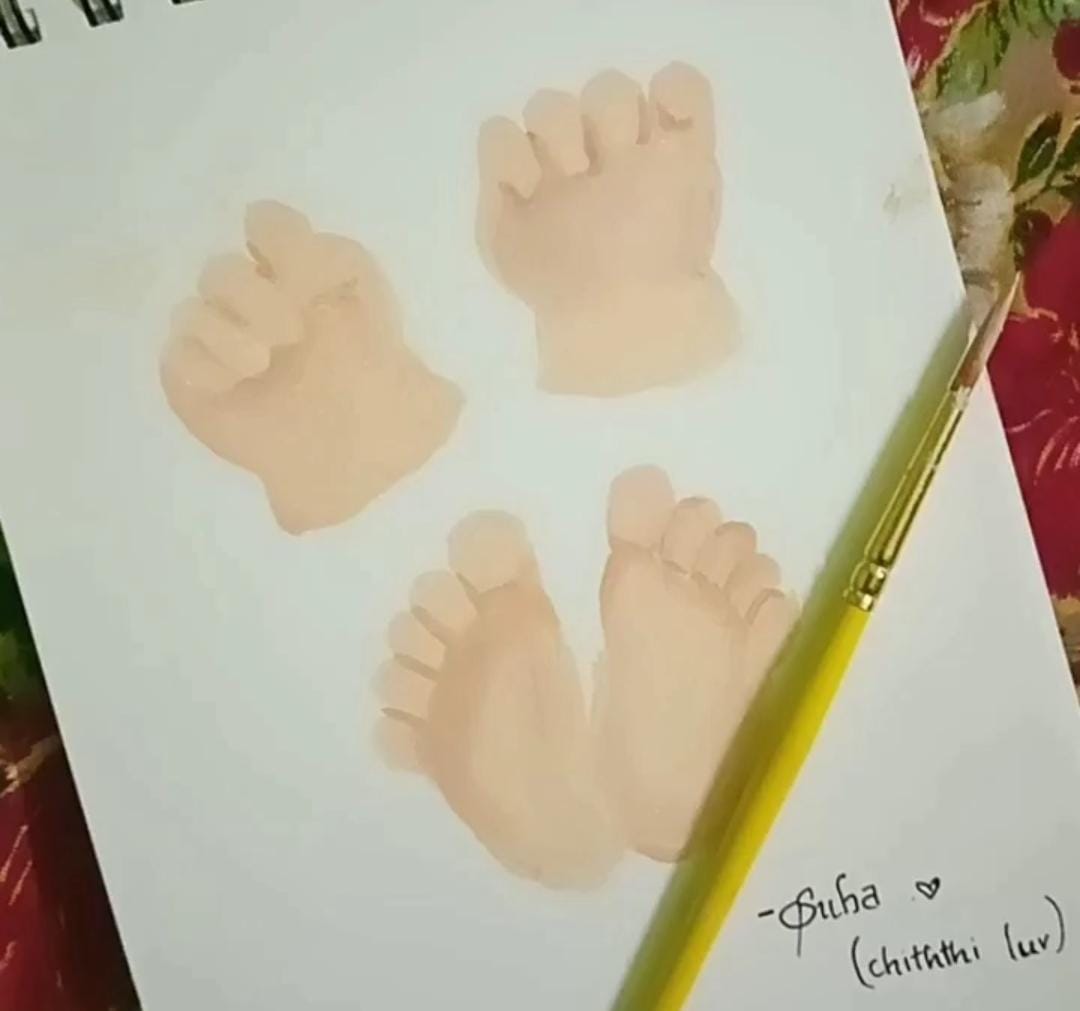 -Suba ♡
(chiththi luv)